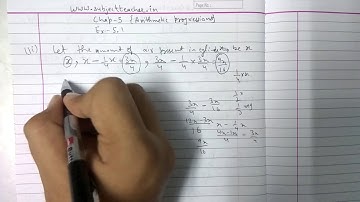 www.subjectteacher.in
Chap-5 (Arithmetic Progressions)
Ex-5.1
(ii) Let the amount of air present in cylinder be x
x, x - 1/4 x = 3x/4, 3x/4 - 1/4 x 3x/4 = 9x/16
3x/4 - 3x/16
12x - 3x/16
9x/16
x - 1/4 x
4x - x/4 = 3x/4